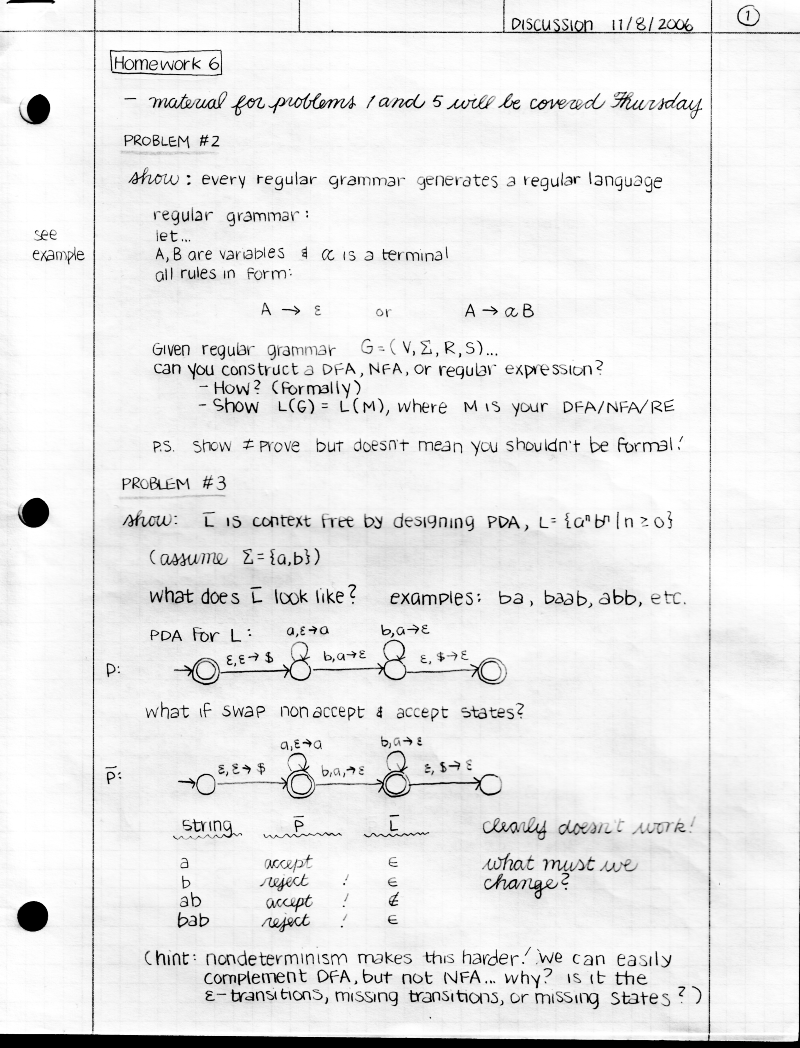 DISCUSSION 11/8/2006
1
Homework 6
- material for problems 1 and 5 will be covered Thursday
PROBLEM #2
show: every regular grammar generates a regular language
regular grammar:
see
let...
example
A, B are variables & α is a terminal
all rules in form:
A → ε or A → αB
Given regular grammar G=(V, Σ, R, S)...
can you construct a DFA, NFA, or regular expression?
- How? (formally)
- Show L(G) = L(M), where M is your DFA/NFA/RE
P.S. Show ≠ Prove but doesn't mean you shouldn't be formal!
PROBLEM #3
show: L̅ is context free by designing PDA, L= {aⁿbⁿ | n ≥ 0}
(assume Σ={a,b})
what does L̅ look like? examples: ba, baab, abb, etc.
PDA for L: a,ε→a b,a→ε
P: ε,ε→$ b,a→ε ε,$→ε
what if swap nonaccept & accept states?
a,ε→a b,a→ε
P̅: ε,ε→$ b,a,→ε ε,$→ε
string P̅ L̅ clearly doesn't work!
a accept ∈ what must we
b reject ! ∈ change?
ab accept ! ∉
bab reject ! ∈
(hint: nondeterminism makes this harder! We can easily
complement DFA, but not NFA... why? is it the
ε-transitions, missing transitions, or missing states?)